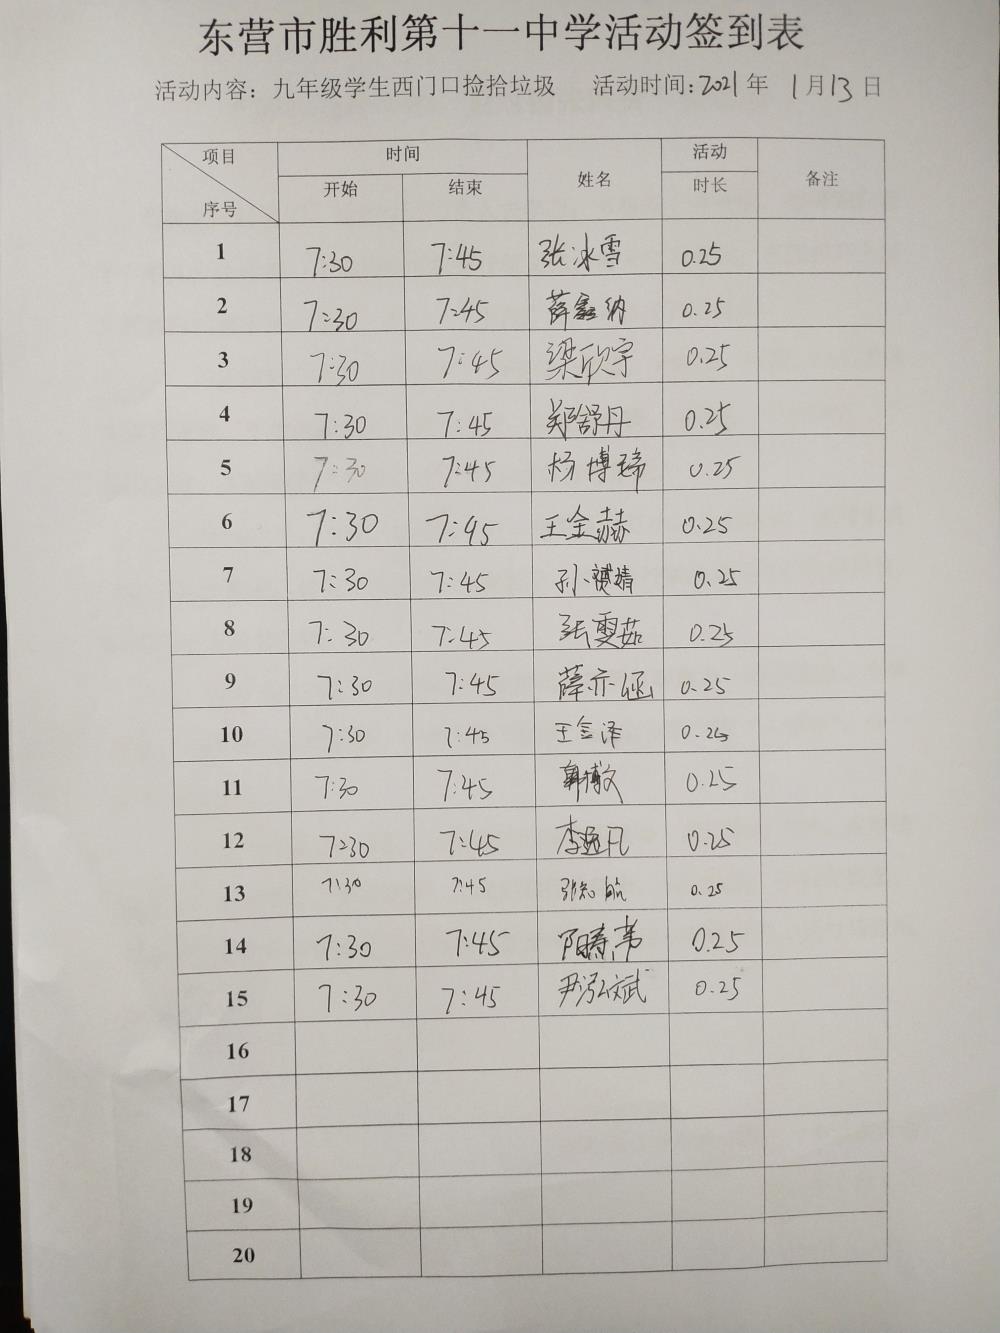 东营市胜利第十一中学活动签到表
活动内容：九年级学生西门口捡拾垃圾 活动时间：2021年 1月13日
项目 时间 姓名 活动 备注
序号 开始 结束 时长
1 7:30 7:45 张冰雪 0.25
2 7:30 7:45 薛鑫纳 0.25
3 7:30 7:45 梁欣宇 0.25
4 7:30 7:45 郑舒丹 0.25
5 7:30 7:45 杨博瑞 0.25
6 7:30 7:45 王金赫 0.25
7 7:30 7:45 孙 婧 0.25
8 7:30 7:45 张雯茹 0.25
9 7:30 7:45 薛亦涵 0.25
10 7:30 7:45 王金泽 0.25
11 7:30 7:45 郭博文 0.25
12 7:30 7:45 李逸凡 0.25
13 7:30 7:45 张知航 0.25
14 7:30 7:45 0.25
15 7:30 7:45 尹泓斌 0.25
16
17
18
19
20